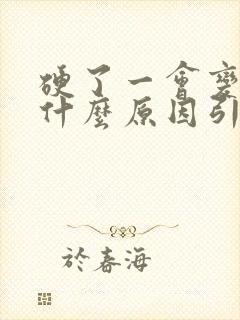 硬了一會變
什麼原因引
於春海